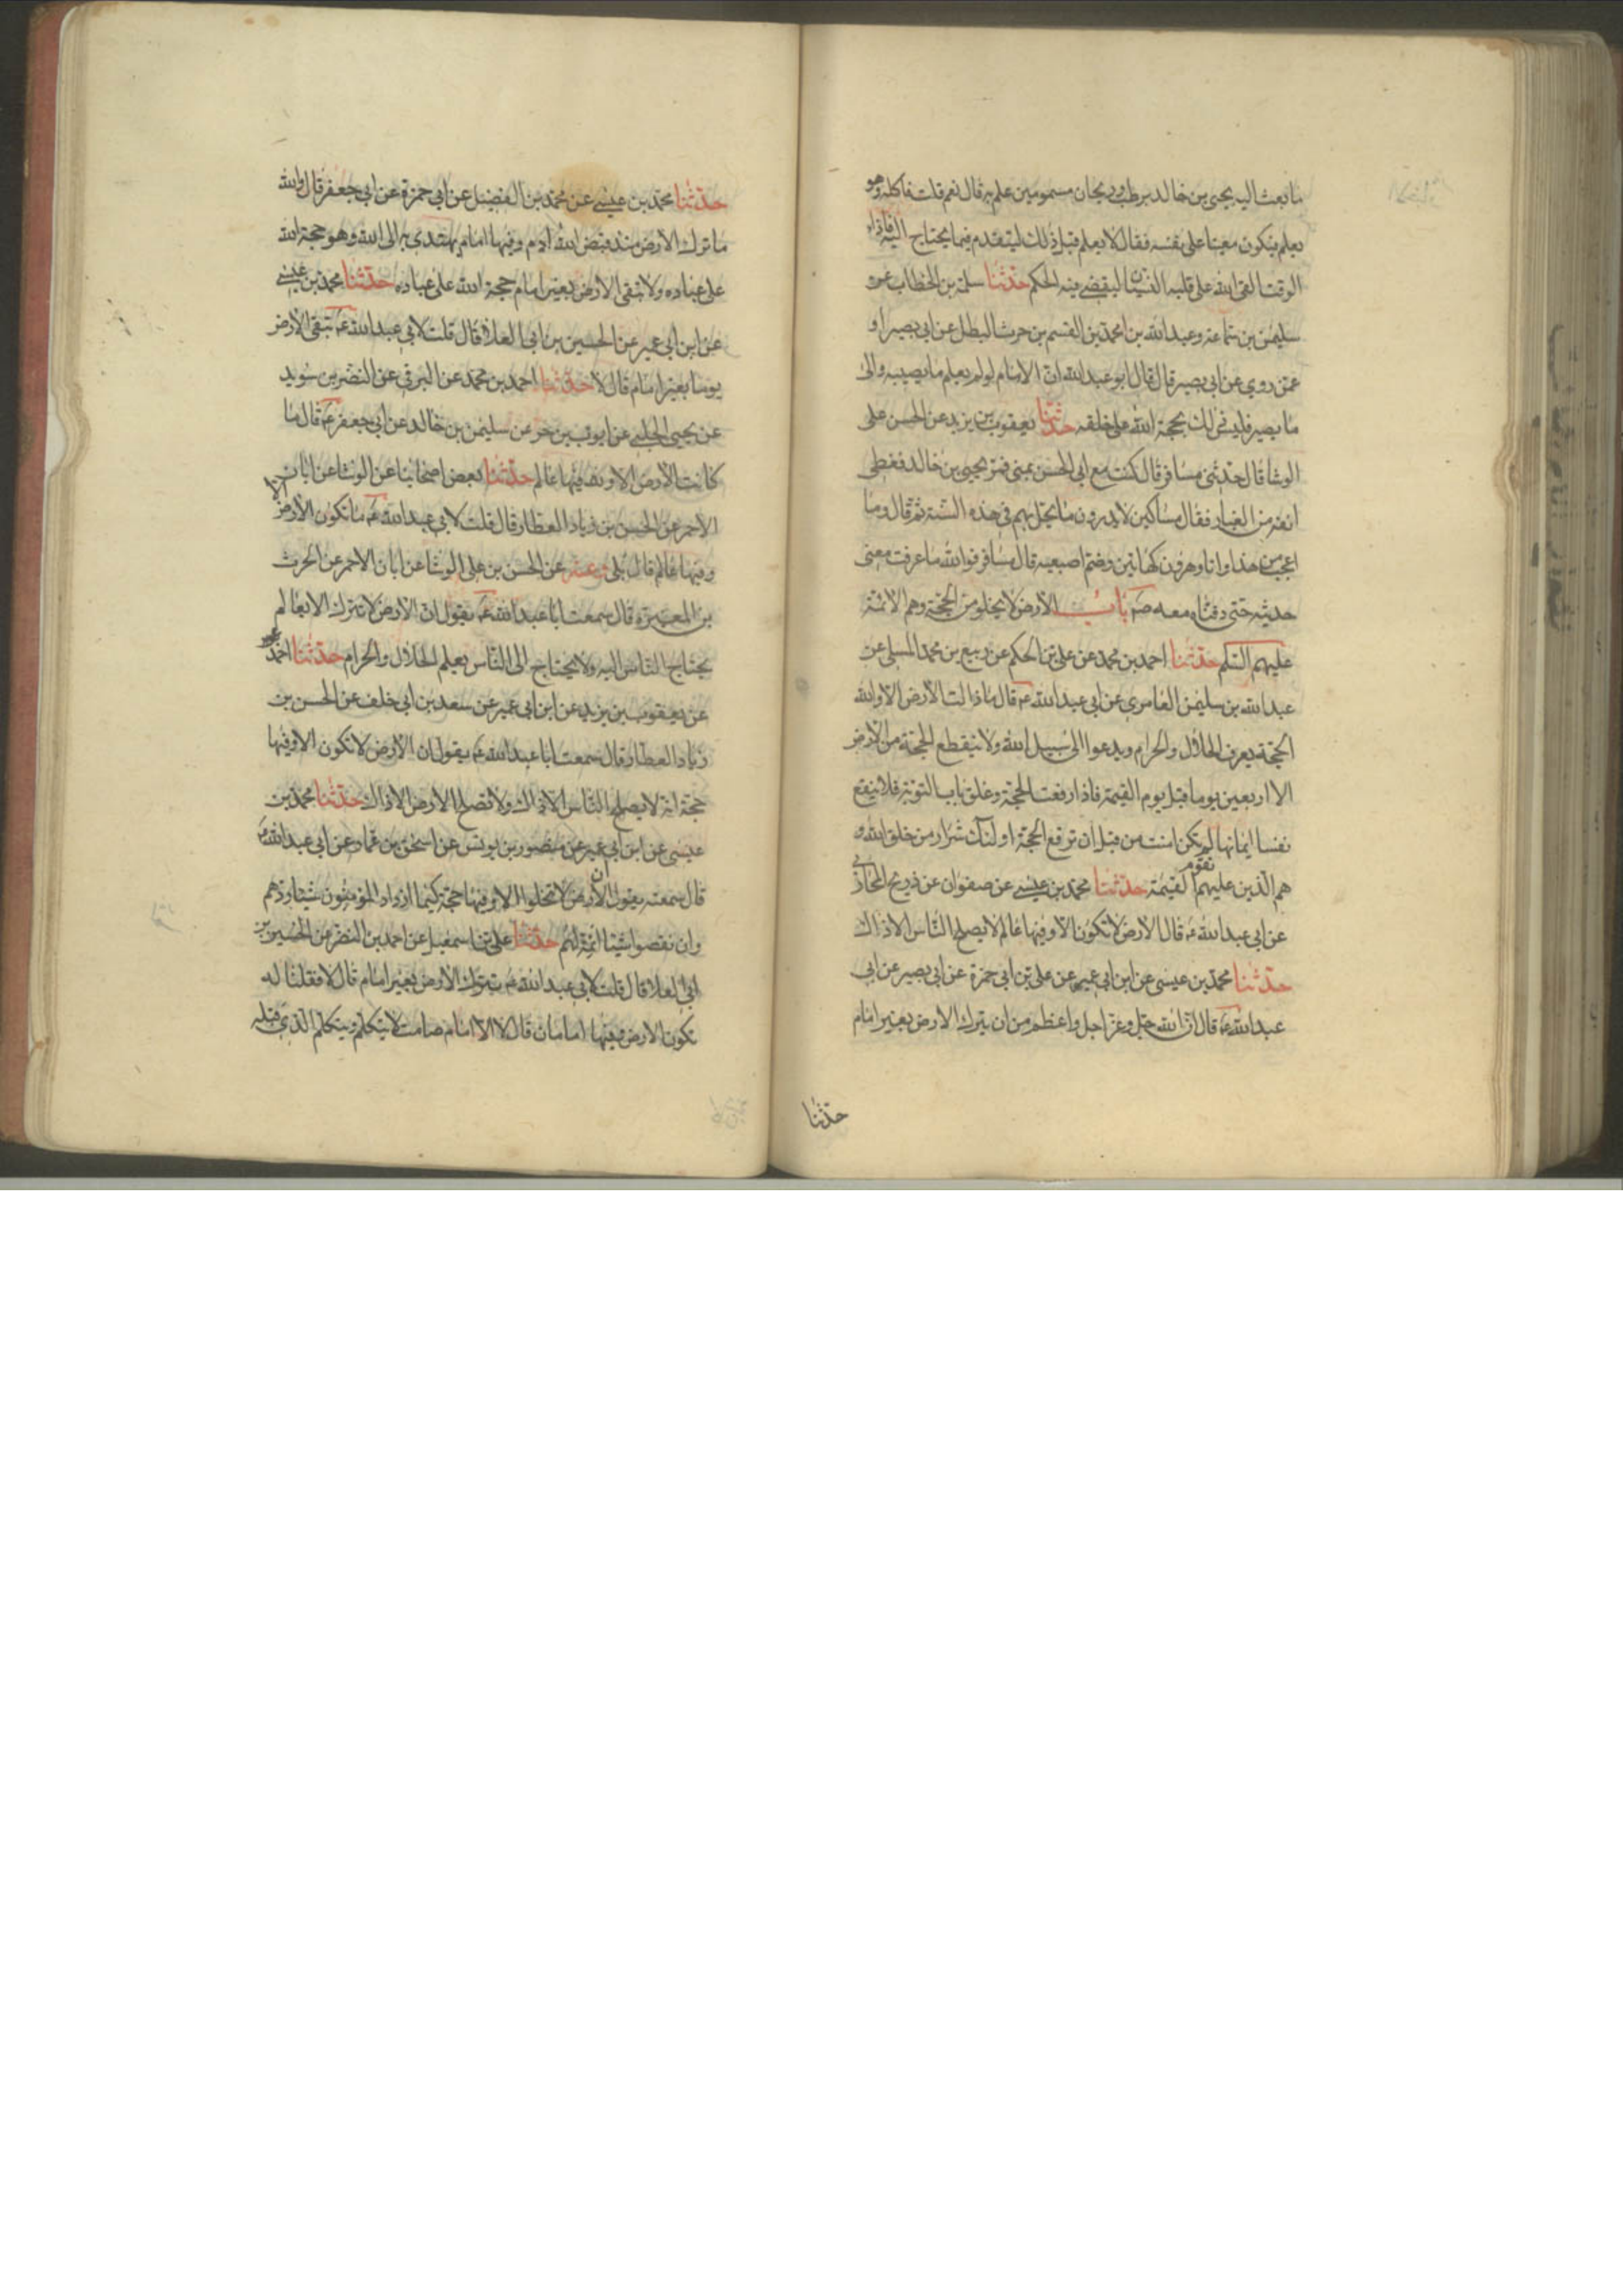 ما بعث اليه يحيى بن خالد برطب وريحان مسمومين علم به قال نعم قلت فاكله وهو
يعلم فيكون معينا على نفسه فقال لا يعلم قبل ذلك ليتقدم فيما يحتاج اليه فاذا جاء
الوقت القى الله على قلبه النسيان ليقضى فيه الحكم حدثنا سلمة بن الخطاب عن
سليمن بن سماعة وعبد الله بن محمد بن القسم بن حرث البطل عن ابى بصير او
عمن روى عن ابى بصير قال قال ابو عبد الله ان الامام لو لم يعلم ما يصيبه والى
ما يصير فليس ذلك بحجة الله على خلقه حدثنا يعقوب بن يزيد عن الحسن على
الوشا قال حدثنى مسافر قال كنت مع ابى الحسن بمنى فمر يحيى بن خالد فغطى
انفه من الغبار فقال مساكين لا يدرون ما يحل بهم فى هذه السنة ثم قال وما
اعجب من هذا وانا وهرون كهاتين وضم اصبعيه قال مسافر فوالله ما عرفت معنى
حديثه حتى دفناه معه صم باب الارض لا يخلو من الحجة وهم الائمة
عليهم السلم حدثنا احمد بن محمد عن على بن الحكم عن ربيع بن محمد المسلى عن
عبد الله بن سليمن العامرى عن ابى عبد الله ع قال ما ذالت الارض الا ولله
الحجة يعرف الحلال والحرام ويدعوا الى سبيل الله ولا ينقطع الحجة من الارض
الا اربعين يوما قبل يوم القيمة فاذا رفعت الحجة وغلق باب التوبة فلا ينفع
نفسا ايمانها لم يكن امنت من قبل ان ترفع الحجة اولئك شرار من خلق الله و
هم الذين عليهم تقوم القيمة حدثنا محمد بن عيسى عن صفوان عن ذريح المحاربى
عن ابى عبد الله ع قال الارض لا تكون الا وفيها عالم لا يصلح الناس الا ذاك
حدثنا محمد بن عيسى عن ابن ابى عمير عن على بن ابى حمزة عن ابى بصير عن ابى
عبد الله ع قال ان الله جل وعز اجل واعظم من ان يترك الارض بغير امام
حدثنا
حدثنا محمد بن عيسى عن محمد بن الفضيل عن ابى حمزة عن ابى جعفر قال والله
ما ترك الارض منذ قبض الله ادم وفيها امام يهتدى به الى الله وهو حجة الله
على عباده ولا تبقى الارض بغير امام حجة الله على عباده حدثنا محمد بن عيسى
عن ابن ابى عمير عن الحسين بن ابى العلا قال قلت لابى عبد الله ع تبقى الارض
يوما بغير امام قال لا حدثنا احمد بن محمد عن البرقى عن النضر بن سويد
عن يحيى الحلبى عن ايوب بن حر عن سليمن بن خالد عن ابى جعفر ع قال ما
كانت الارض الا ولله فيها عالم حدثنا بعض اصحابنا عن الوشا عن ابان
الاحمر عن الحسن بن زياد العطار قال قلت لابى عبد الله ع ما تكون الارض
وفيها عالم قال بلى وعنه عن الحسن بن على الوشا عن ابان الاحمر عن الحرث
بن المغيرة قال سمعت ابا عبد الله ع يقول ان الارض لا تترك الا بعالم
يحتاج الناس اليه ولا يحتاج الى الناس يعلم الحلال والحرام حدثنا احمد
عن يعقوب بن يزيد عن ابن ابى عمير عن سعد بن ابى خلف عن الحسن بن
زياد العطار قال سمعت ابا عبد الله ع يقول ان الارض لا تكون الا وفيها
حجة انه لا يصلح الناس الا ذاك ولا تصلح الارض الا ذاك حدثنا محمد بن
عيسى عن ابن ابى عمير عن منصور بن يونس عن اسحق بن عمار عن ابى عبد الله ع
قال سمعته يقول ان الارض لا تخلوا الا وفيها حجة كيما ان زاد المؤمنون شيئا ردهم
وان نقصوا شيئا اتمه لهم حدثنا على بن اسمعيل عن احمد بن النضر عن الحسين بن
ابى العلا قال قلت لابى عبد الله ع تترك الارض بغير امام قال لا فقلنا له
تكون الارض وفيها امامان قال لا الا امام صامت لا يتكلم ويتكلم الذى قبله